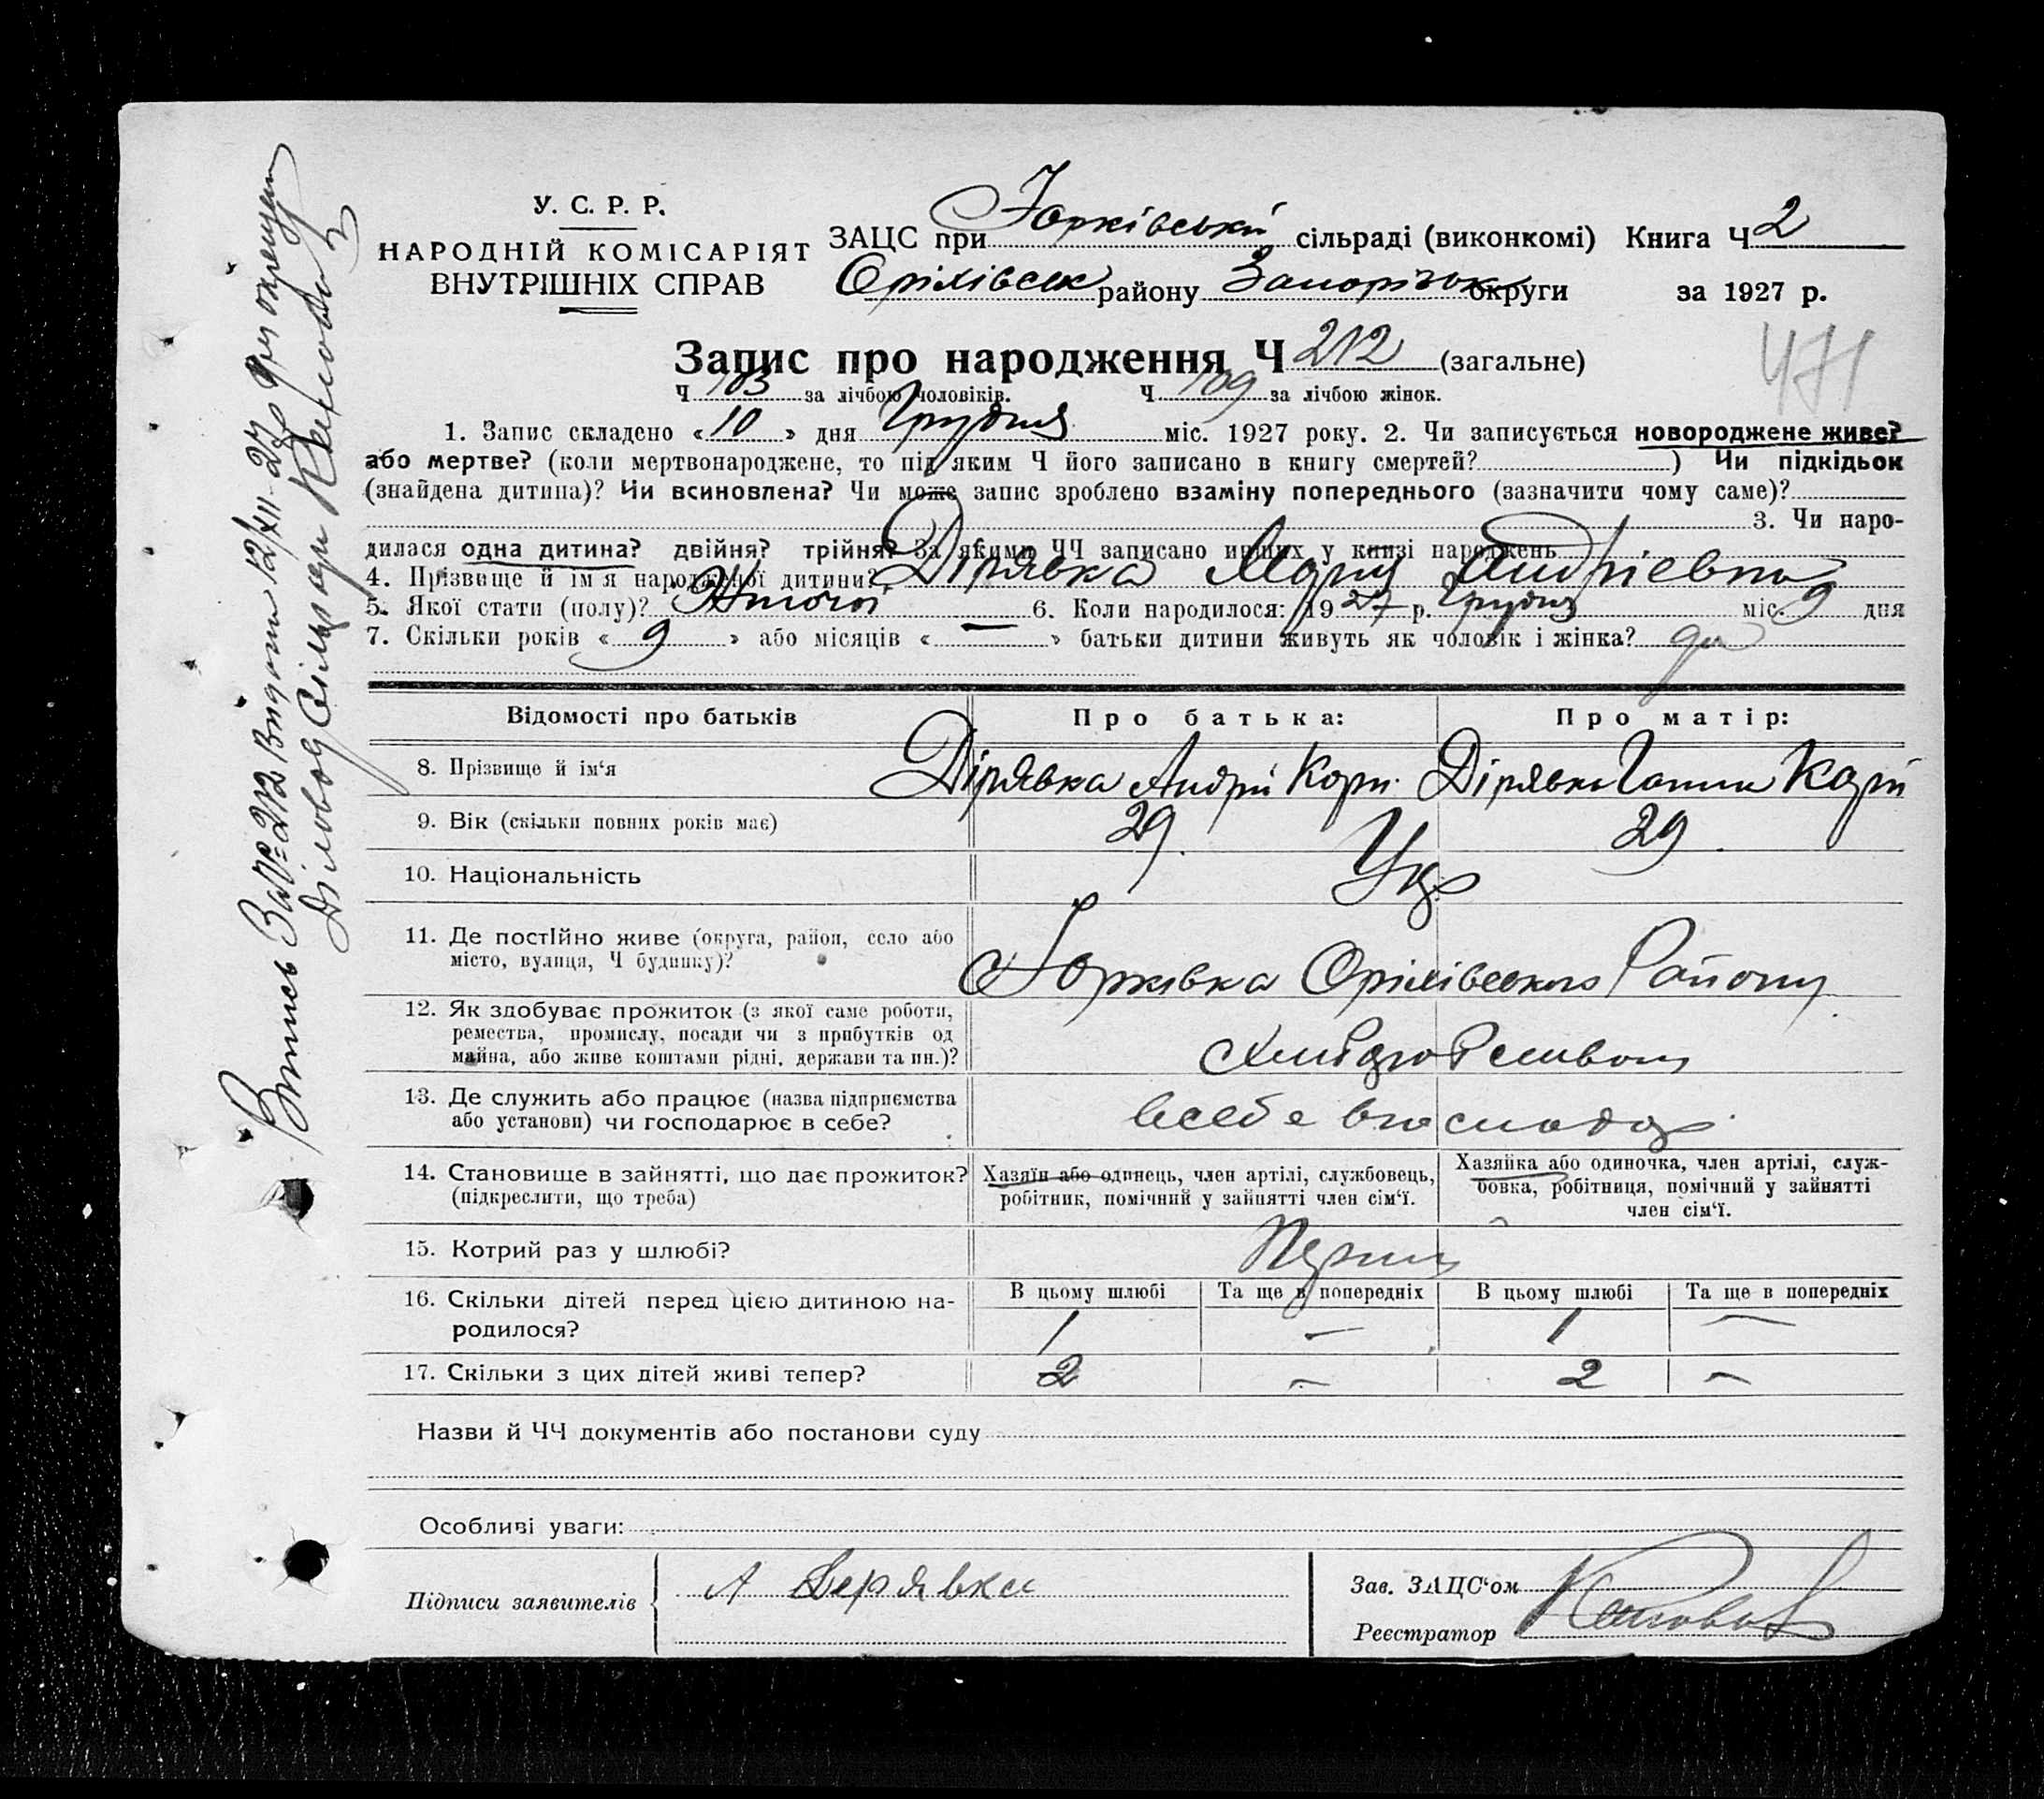 У. С. Р. Р.
НАРОДНІЙ КОМІСАРІЯТ
ВНУТРІШНІХ СПРАВ
ЗАЦС при Юрківській сільраді (виконкомі) Книга Ч 2
Оріхівськ району Запорізьк округи за 1927 р.
Запис про народження Ч 212 (загальне)
471
Ч 103 за лічбою чоловіків. Ч 109 за лічбою жінок.
1. Запис складено « 10 » дня Грудня міс. 1927 року. 2. Чи записується новороджене живе?
або мертве? (коли мертвонароджене, то під яким Ч його записано в книгу смертей? ) Чи підкідьок
(знайдена дитина)? Чи всиновлена? Чи може запис зроблено взаміну попереднього (зазначити чому саме)?
3. Чи наро-
дилася одна дитина? двійня? трійня? За якими ЧЧ записано инших у книзі народжень
4. Прізвище й ім'я народженої дитини? Дірявка Марія Андріевна
5. Якої стати (полу)? Жіночої 6. Коли народилося: 1927 р. Грудня міс. 9 дня
7. Скільки років « 9 » або місяців « — » батьки дитини живуть як чоловік і жінка? да
Відомості про батьків
Про батька:
Про матір:
8. Прізвище й ім'я Дірявка Андрій Корн. Дірявка Ганна
9. Вік (скільки повних років має) 29. 29.
10. Національність Укр
11. Де постійно живе (округа, район, село або
місто, вулиця, Ч будинку)?
Юрківка Оріхівського Району
12. Як здобуває прожиток (з якої саме роботи,
ремества, промислу, посади чи з прибутків од
майна, або живе коштами рідні, держави та ин.)?
13. Де служить або працює (назва підприємства
або установи) чи господарює в себе?
всебе в
14. Становище в зайнятті, що дає прожиток?
(підкреслити, що треба)
Хазяїн або одинець, член артілі, службовець,
робітник, помічний у зайнятті член сім'ї.
Хазяйка або одиночка, член артілі, служ-
бовка, робітниця, помічний у зайнятті
член сім'ї.
15. Котрий раз у шлюбі?
16. Скільки дітей перед цією дитиною на-
родилося?
В цьому шлюбі Та ще в попередніх В цьому шлюбі Та ще в попередніх
1 — 1 —
17. Скільки з цих дітей живі тепер? 2 — 2 —
Назви й ЧЧ документів або постанови суду
Особливі уваги:
Підписи заявителів А Дерявка
Зав. ЗАЦС'ом
Реєстратор
Випись За № 212 Видат 12/XII-27
Діловод Сільради